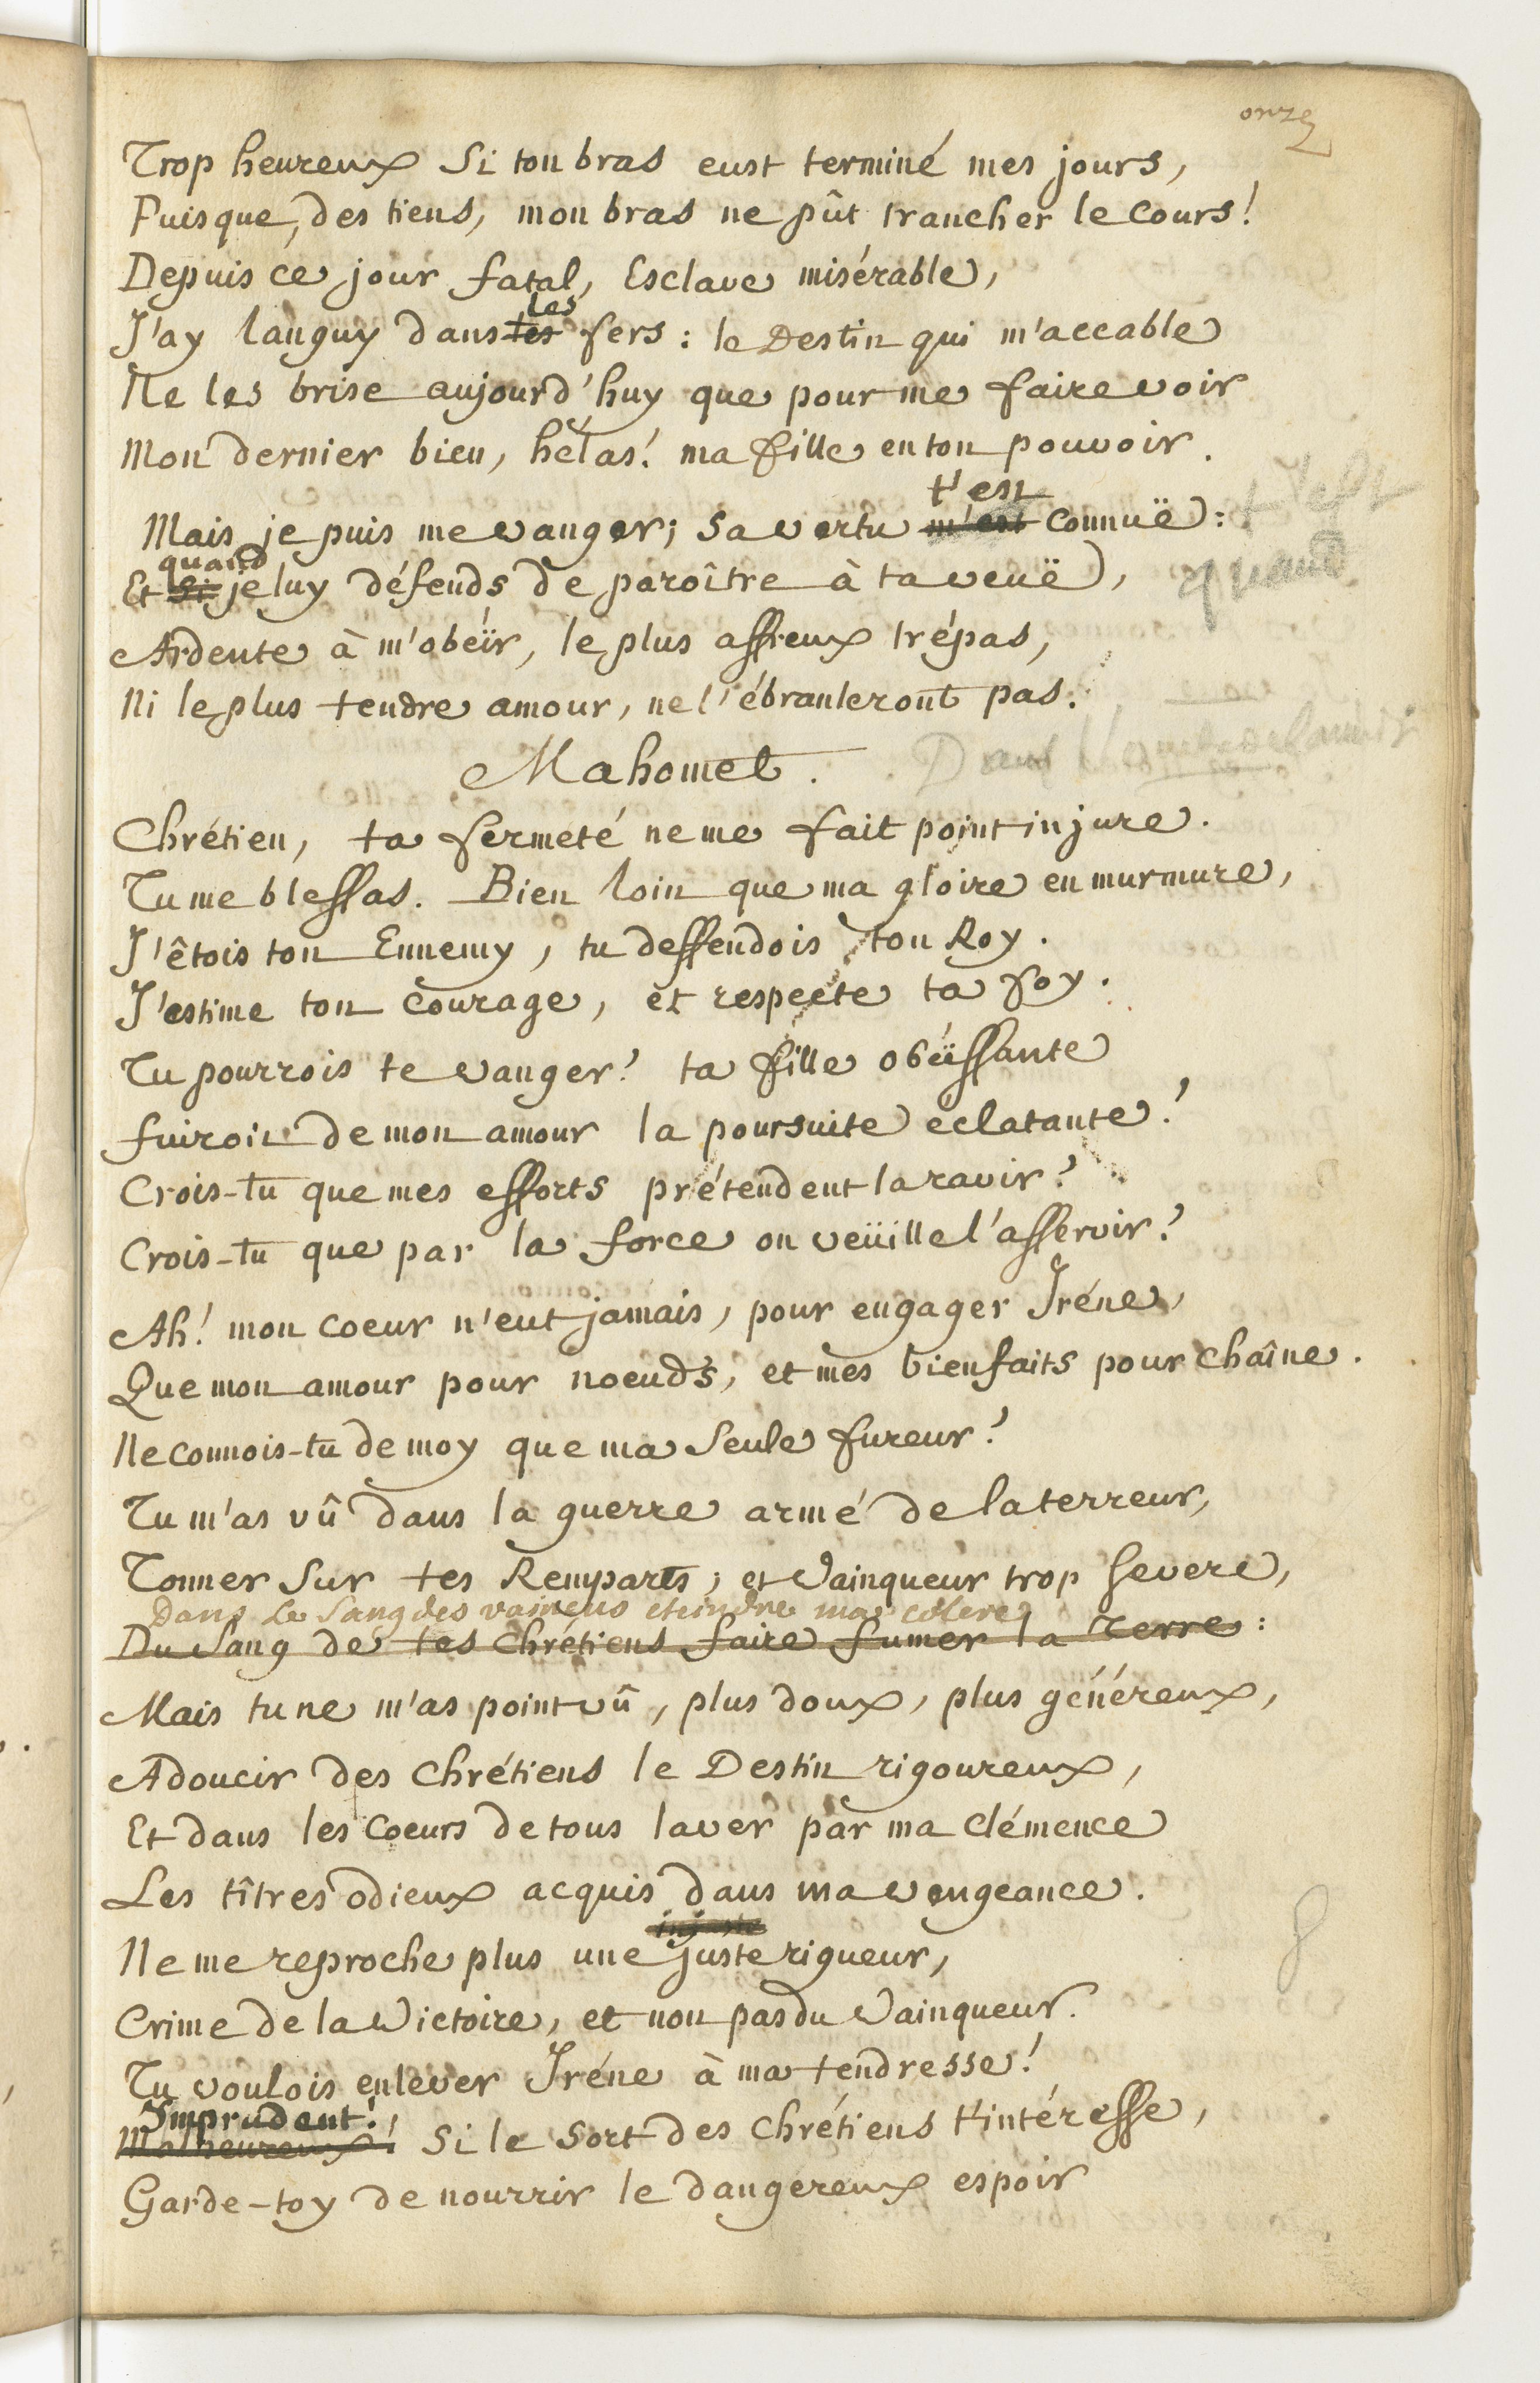 onze
Trop heureux si ton bras eust terminé mes jours,
Puisque, des tiens, mon bras ne pût trancher le cours!
Depuis ce jour fatal, Esclave misérable,
les
J'ay languy dans tes fers : le Destin qui m'accable
Ne les brise aujourd'huy que pour me faire voir
Mon dernier bien, hélas! ma fille en ton pouvoir.
t'est
Mais je puis me vanger; sa vertu m'est connuë :
t'est
quand
Et si je luy défends de paroître à ta veuë,
quand
Ardente à m'obeïr, le plus affreux trépas,
Ni le plus tendre amour, ne l'ébranleront pas.
Mahomet.
Chrétien, ta fermeté ne me fait point injure.
Tu me blessas. Bien loin que ma gloire en murmure,
J'êtois ton Ennemy, tu deffendois ton Roy.
J'estime ton courage, et respecte ta foy.
Tu pourrois te vanger? ta fille obéïssante
fuiroit de mon amour la poursuite eclatante?
Crois-tu que mes efforts prétendent la ravir?
Crois-tu que par la force on veüille l'asservir?
Ah! mon coeur n'eut jamais, pour engager Iréne,
Que mon amour pour noeuds, et mes bienfaits pour chaîne.
Ne connois-tu de moy que ma seule fureur?
Tu m'as vû dans la guerre armé de la terreur,
Tonner sur tes Remparts; et Vainqueur trop severe,
Dans le sang des vaincus eteindre ma colere
Du sang de tes chrétiens faire fumer la Terre :
Mais tu ne m'as point vû, plus doux, plus généreux,
Adoucir des Chrétiens le Destin rigoureux,
Et dans les Coeurs de tous laver par ma Clémence
Les tîtres odieux acquis dans ma vengeance.
injuste
Ne me reproche plus une juste rigueur,
Crime de la Victoire, et non pas du Vainqueur.
Tu voulois enlever Iréne à ma tendresse!
Imprudent!
Malheureux! si le sort des Chrétiens t'intéresse,
Garde-toy de nourrir le dangereux espoir